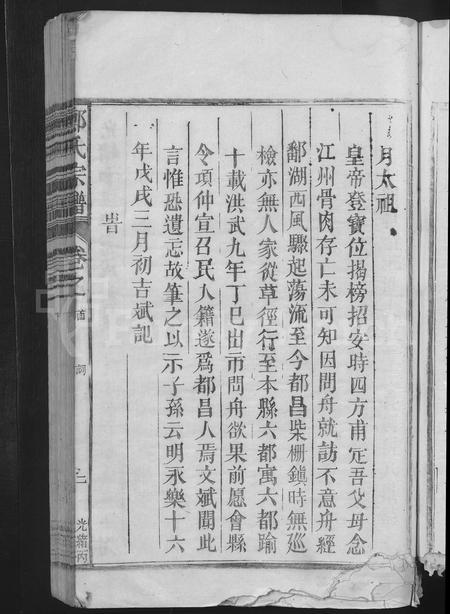 月太祖
皇帝登寶位揭榜招安時四方甫定吾父母念
江州骨肉存亡未可知因問舟就訪不意舟經
鄱湖西風驟起蕩流至今都昌柴栅鎮時無廵
檢亦無人家從草徑行至本縣六都寓六都踰
十載洪武九年丁巳出市問舟欲果前愿會縣
令項仲宣召民入籍遂爲都昌人焉文斌聞此
言惟恐遺忘故筆之以示子孫云明永樂十六
年戊戌三月初吉斌記
氏宗譜
卷之
詞
光緒丙